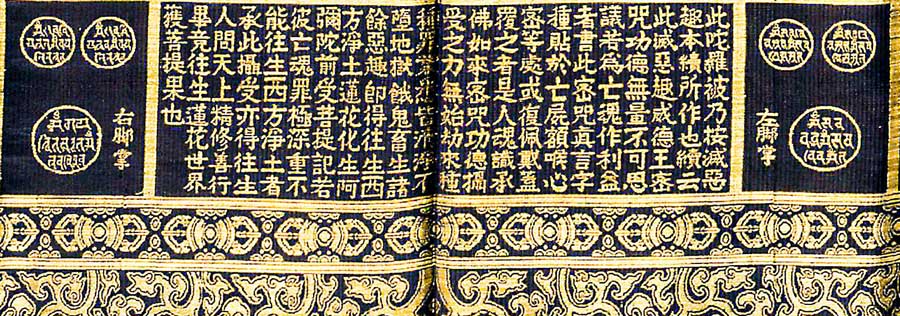 左脚掌
此陀羅被乃按滅惡
趣本續所作也續云
此滅惡趣威德王密
咒功德無量不可思
議若為亡魂作利益
者書此密咒真言字
種貼於亡屍額喉心
密等處或復佩戴蓋
覆之者是人魂識承
佛如來密咒功德攝
受之力無始劫來種
種罪業悉皆清淨不
墮地獄餓鬼畜生諸
餘惡趣即得往生西
方淨土蓮花化生阿
彌陀前受菩提記若
彼亡魂罪極深重不
能往生西方淨土者
承此攝受亦得往生
人間天上精修善行
畢竟往生蓮花世界
獲菩提果也
右脚掌